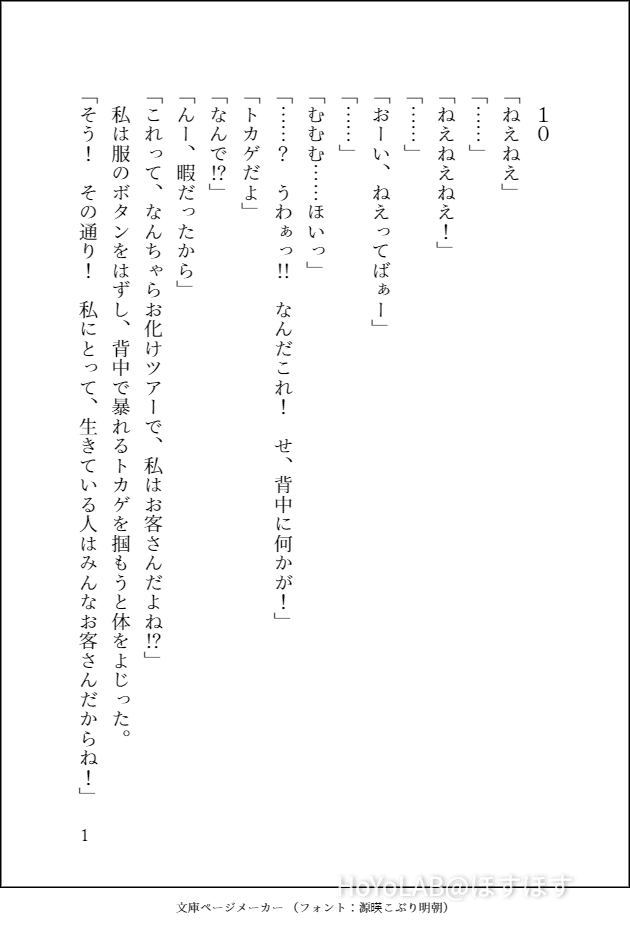 10
「ねえねえ」
「……」
「ねえねえねえ！」
「……」
「おーい、ねえってばぁー」
「……」
「むむむ……ほいっ」
「……？　うわぁっ!!　なんだこれ！　せ、背中に何かが！」
「トカゲだよ」
「なんで!?」
「んー、暇だったから」
「これって、なんちゃらお化けツアーで、私はお客さんだよね!?」
　私は服のボタンをはずし、背中で暴れるトカゲを掴もうと体をよじった。
「そう！　その通り！　私にとって、生きている人はみんなお客さんだからね！」
1
HoYoLAB@ほすほす
文庫ページメーカー（フォント：源暎こぶり明朝）